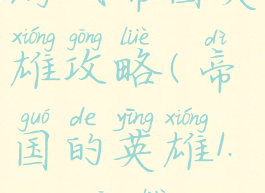 xióng gōng lüè dì
雄攻略(帝
guó de yīng xióng
国的英雄1.